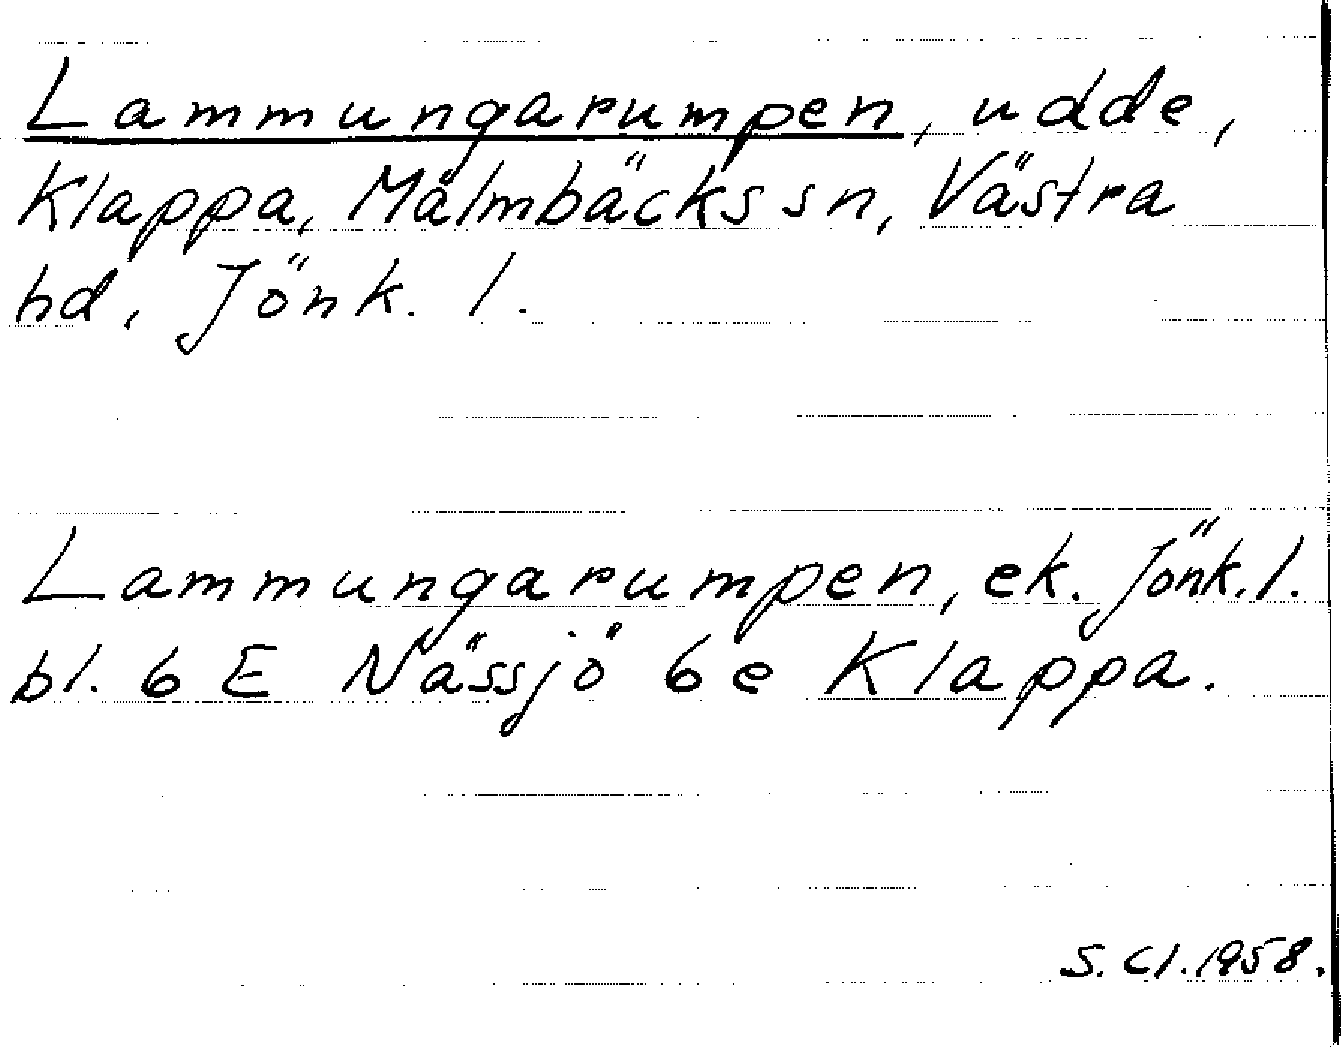 Lammungarumpen, udde,
Klappa, Malmbäcks sn, Västra
hd, Jönk. l.
Lammungarumpen, ek. Jönk. l.
bl. 6 E Nässjö 6e Klappa.
S. Cl. 1958.